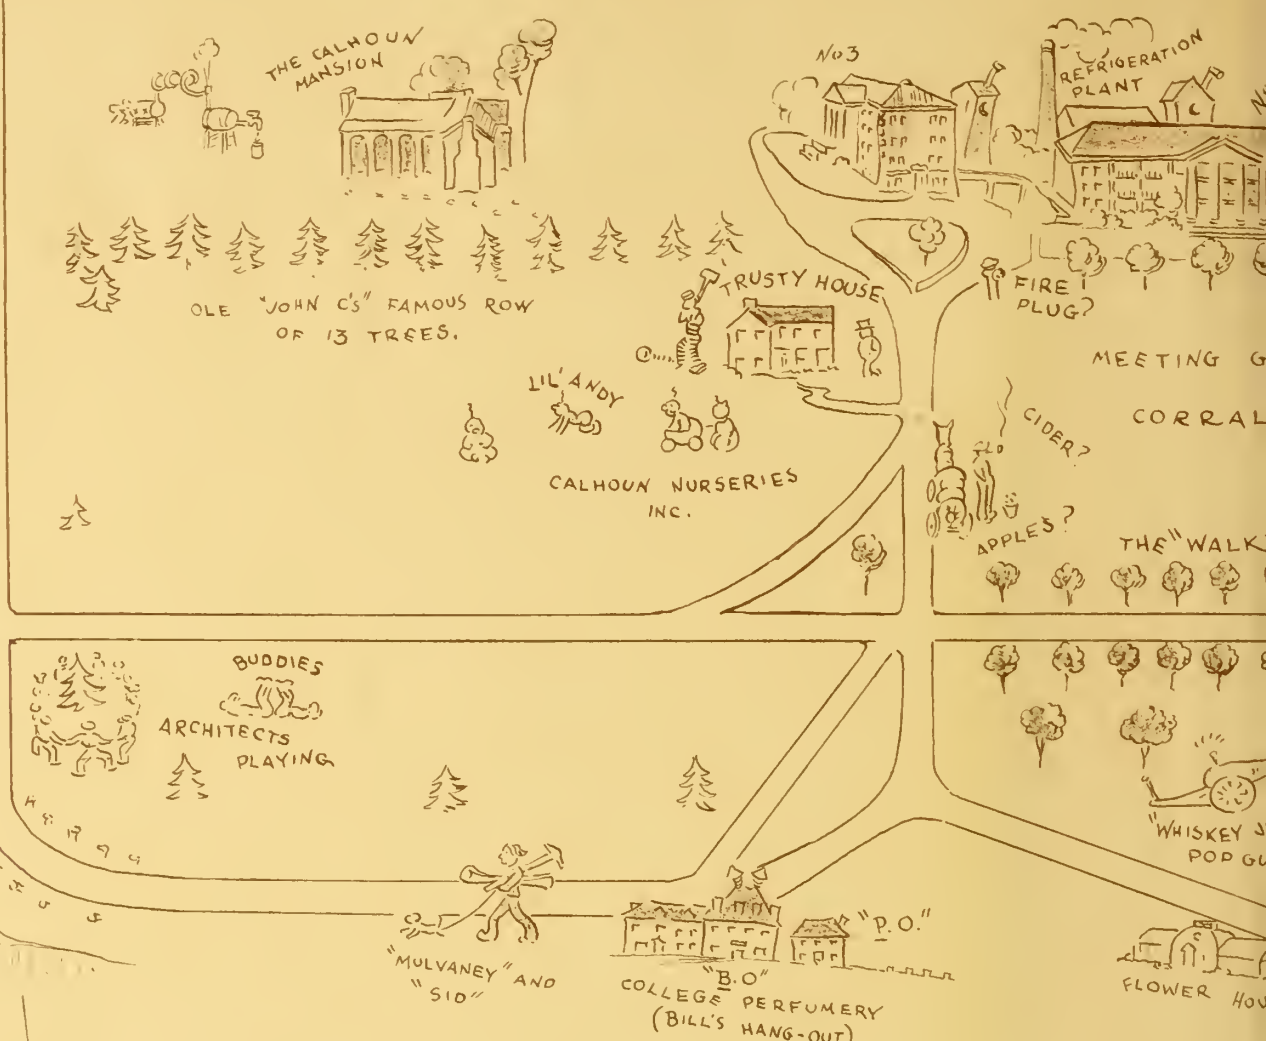 THE CALHOUN
MANSION
No 3
REFRIGERATION
PLANT
OLE "JOHN C'S" FAMOUS ROW
OF 13 TREES.
TRUSTY HOUSE
FIRE
PLUG?
MEETING G
CORRAL
LIL' ANDY
CIDER?
CALHOUN NURSERIES
INC.
APPLES?
THE "WALK
BUDDIES
ARCHITECTS
PLAYING
"WHISKEY
POP GU
"P.O."
"MULVANEY" AND
"SID"
"B.O"
COLLEGE PERFUMERY
(BILL'S HANG-OUT)
FLOWER HOU